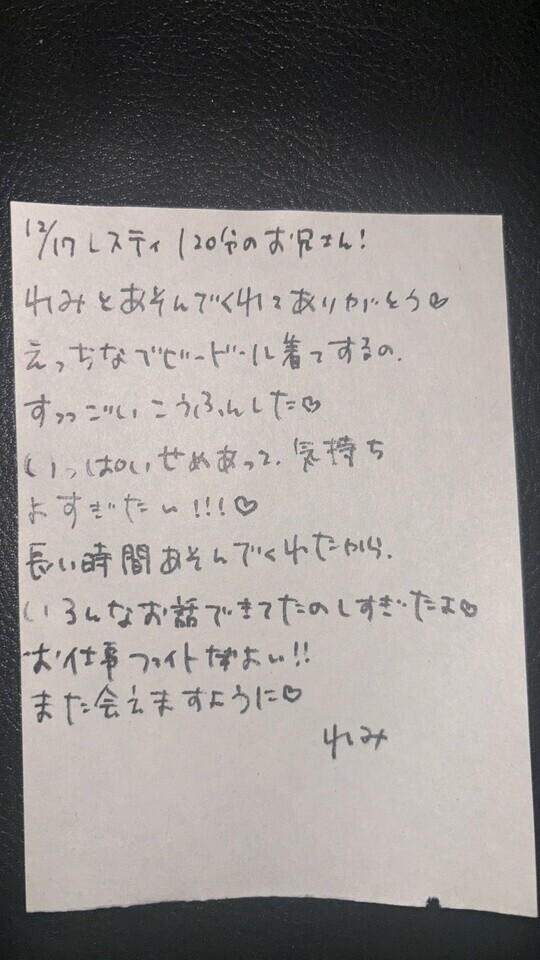 12/17 レスティ 120分のお兄さん!
れみとあそんでくれてありがとう♡
えっちなベビードール着てするの、
すっっごいこうふんした♡
いっぱいせめあって、気持ち
よすぎたぃ!!!♡
長い時間あそんでくれたから、
いろんなお話できてたのしすぎたよ♡
お仕事ファイトだよい!!
また会えますように♡
れみ